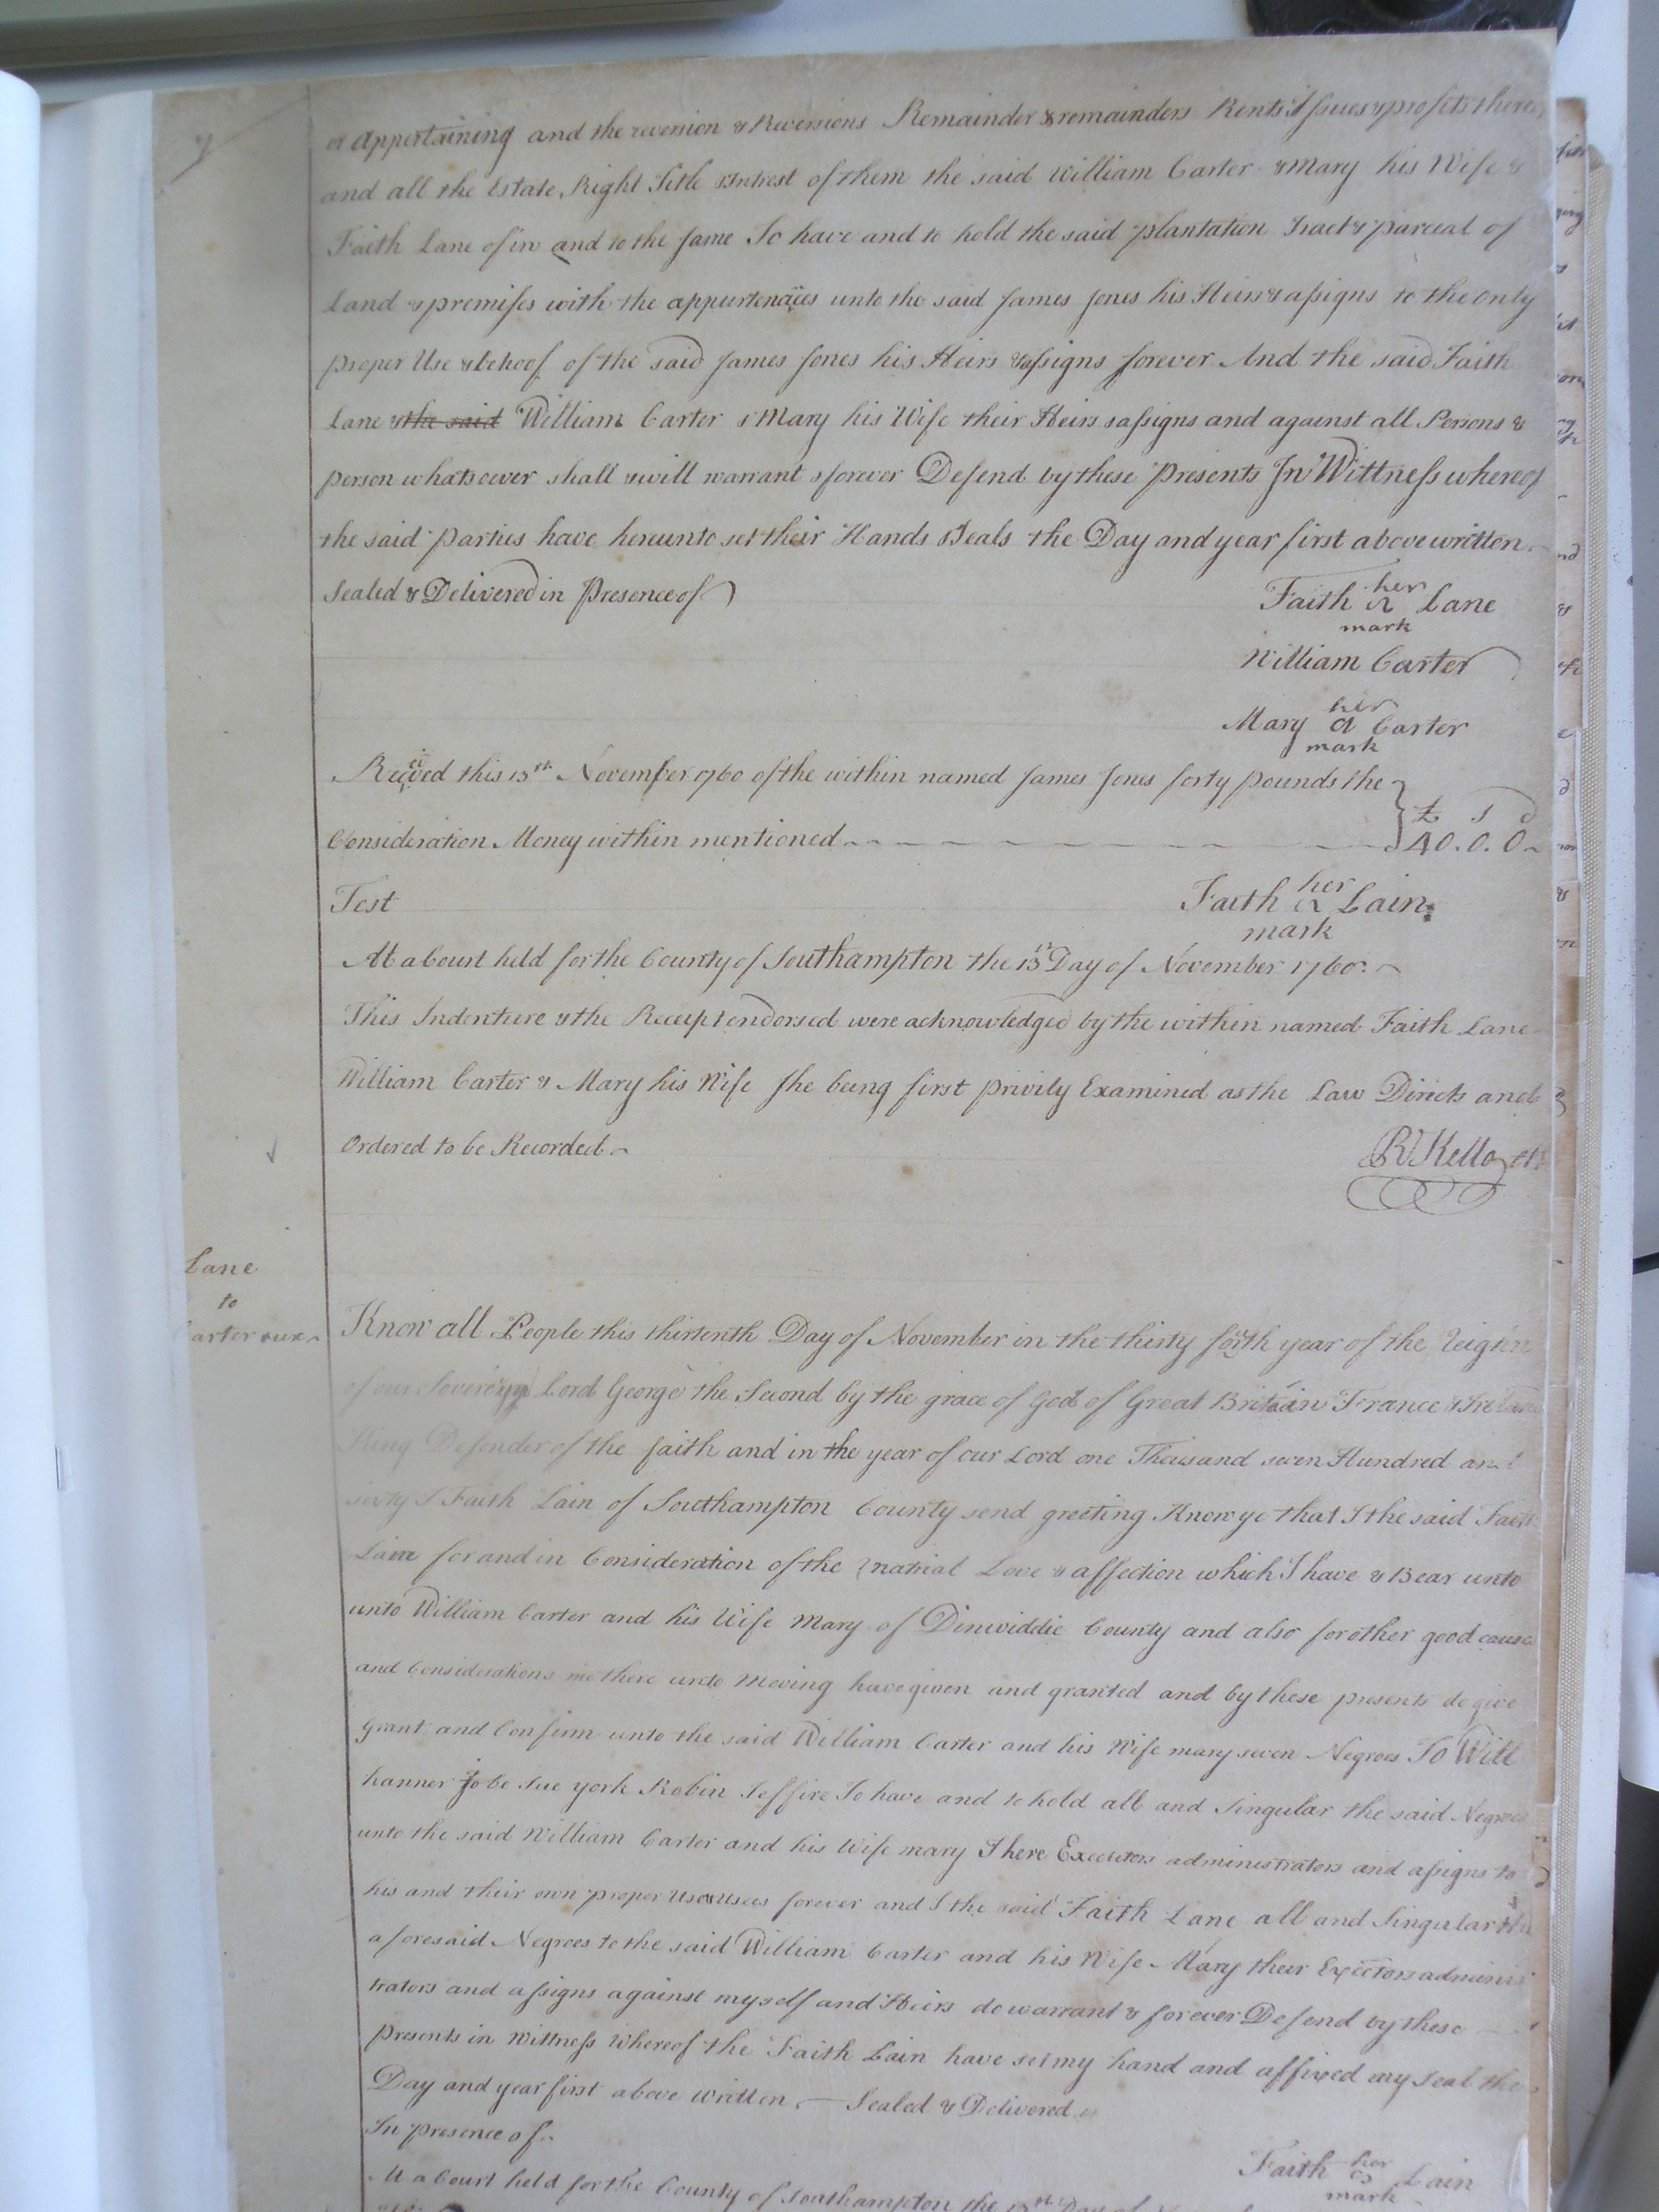 or Appertaining and the reversion & Reversions Remainder & remainders Rents Issues & profits thereof
and all the Estate, Right Title & Intrest of them the said William Carter & Mary his Wife &
Faith Lane of in and to the same To have and to hold the said plantation Tract & parceal of
Land & premises with the appurtenances unto the said James Jones his Heirs & assigns to the only
proper Use & behoof of the said James Jones his Heirs & assigns forever And the said Faith
Lane & the said William Carter & Mary his Wife their Heirs & assigns and against all Persons &
person whatsoever shall & will warrant & forever Defend by these Presents In Wittness whereof
the said Parties have hereunto set their Hands & Seals the Day and year first above written
Sealed & Delivered in Presence of
Faith her Lane
mark
William Carter
her
Mary Carter
mark
Received this 13th November 1760 of the within named James Jones forty pounds the
Consideration Money within mentioned
£ S D
40.0.0
Test
Faith her Lain
mark
At a Court held for the County of Southampton the 13th Day of November 1760
This Indenture & the Receipt endorsed were acknowledged by the within named Faith Lane
William Carter & Mary his Wife She being first privily Examined as the Law Directs and
Ordered to be Recorded
R Kello
Lane
to
arter & ux
Know all People this thirtenth Day of November in the thirty forth year of the Reighn
of our Sovereign Lord George the Second by the grace of God of Great Britain France & Ireland
King Defender of the faith and in the year of our Lord one Thousand seven Hundred and
sixty I Faith Lain of Southampton County send greeting Know ye that I the said Faith
Lain for and in Consideration of the natrial Love & affection which I have & Bear unto
unto William Carter and his Wife Mary of Dinwiddie County and also for other good cause
and Considerations me there unto Moving have given and granted and by these presents do give
grant and Confirm unto the said William Carter and his Wife mary seven Negroes To Witt
hanner Jobe Sue york Robin To have and to hold all and Singular the said Negroes
unto the said William Carter and his Wife mary There Executors administrators and assigns to
his and their own proper Use & Usees forever and I the said Faith Lane all and Singular the
aforesaid Negroes to the said William Carter and his Wife Mary their Exectors adminis
trators and assigns against myself and Heirs do warrant & forever Defend by these
presents in Wittness Whereof the Faith Lain have set my hand and affixed my seal the
Day and year first above written Sealed & Delivered
In presence of
Faith her Lain
mark
At a Court held for the County of Southampton the 13th Day of